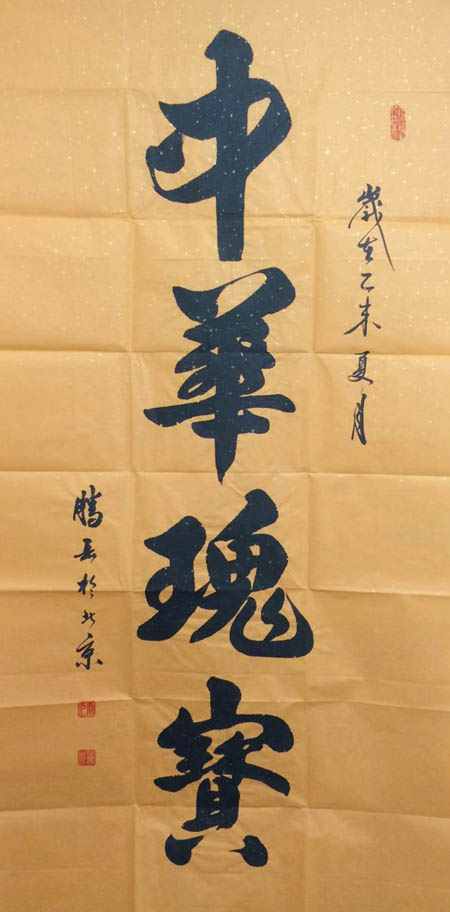 歲在乙未夏月
中華瑰寶
騰岳於北京